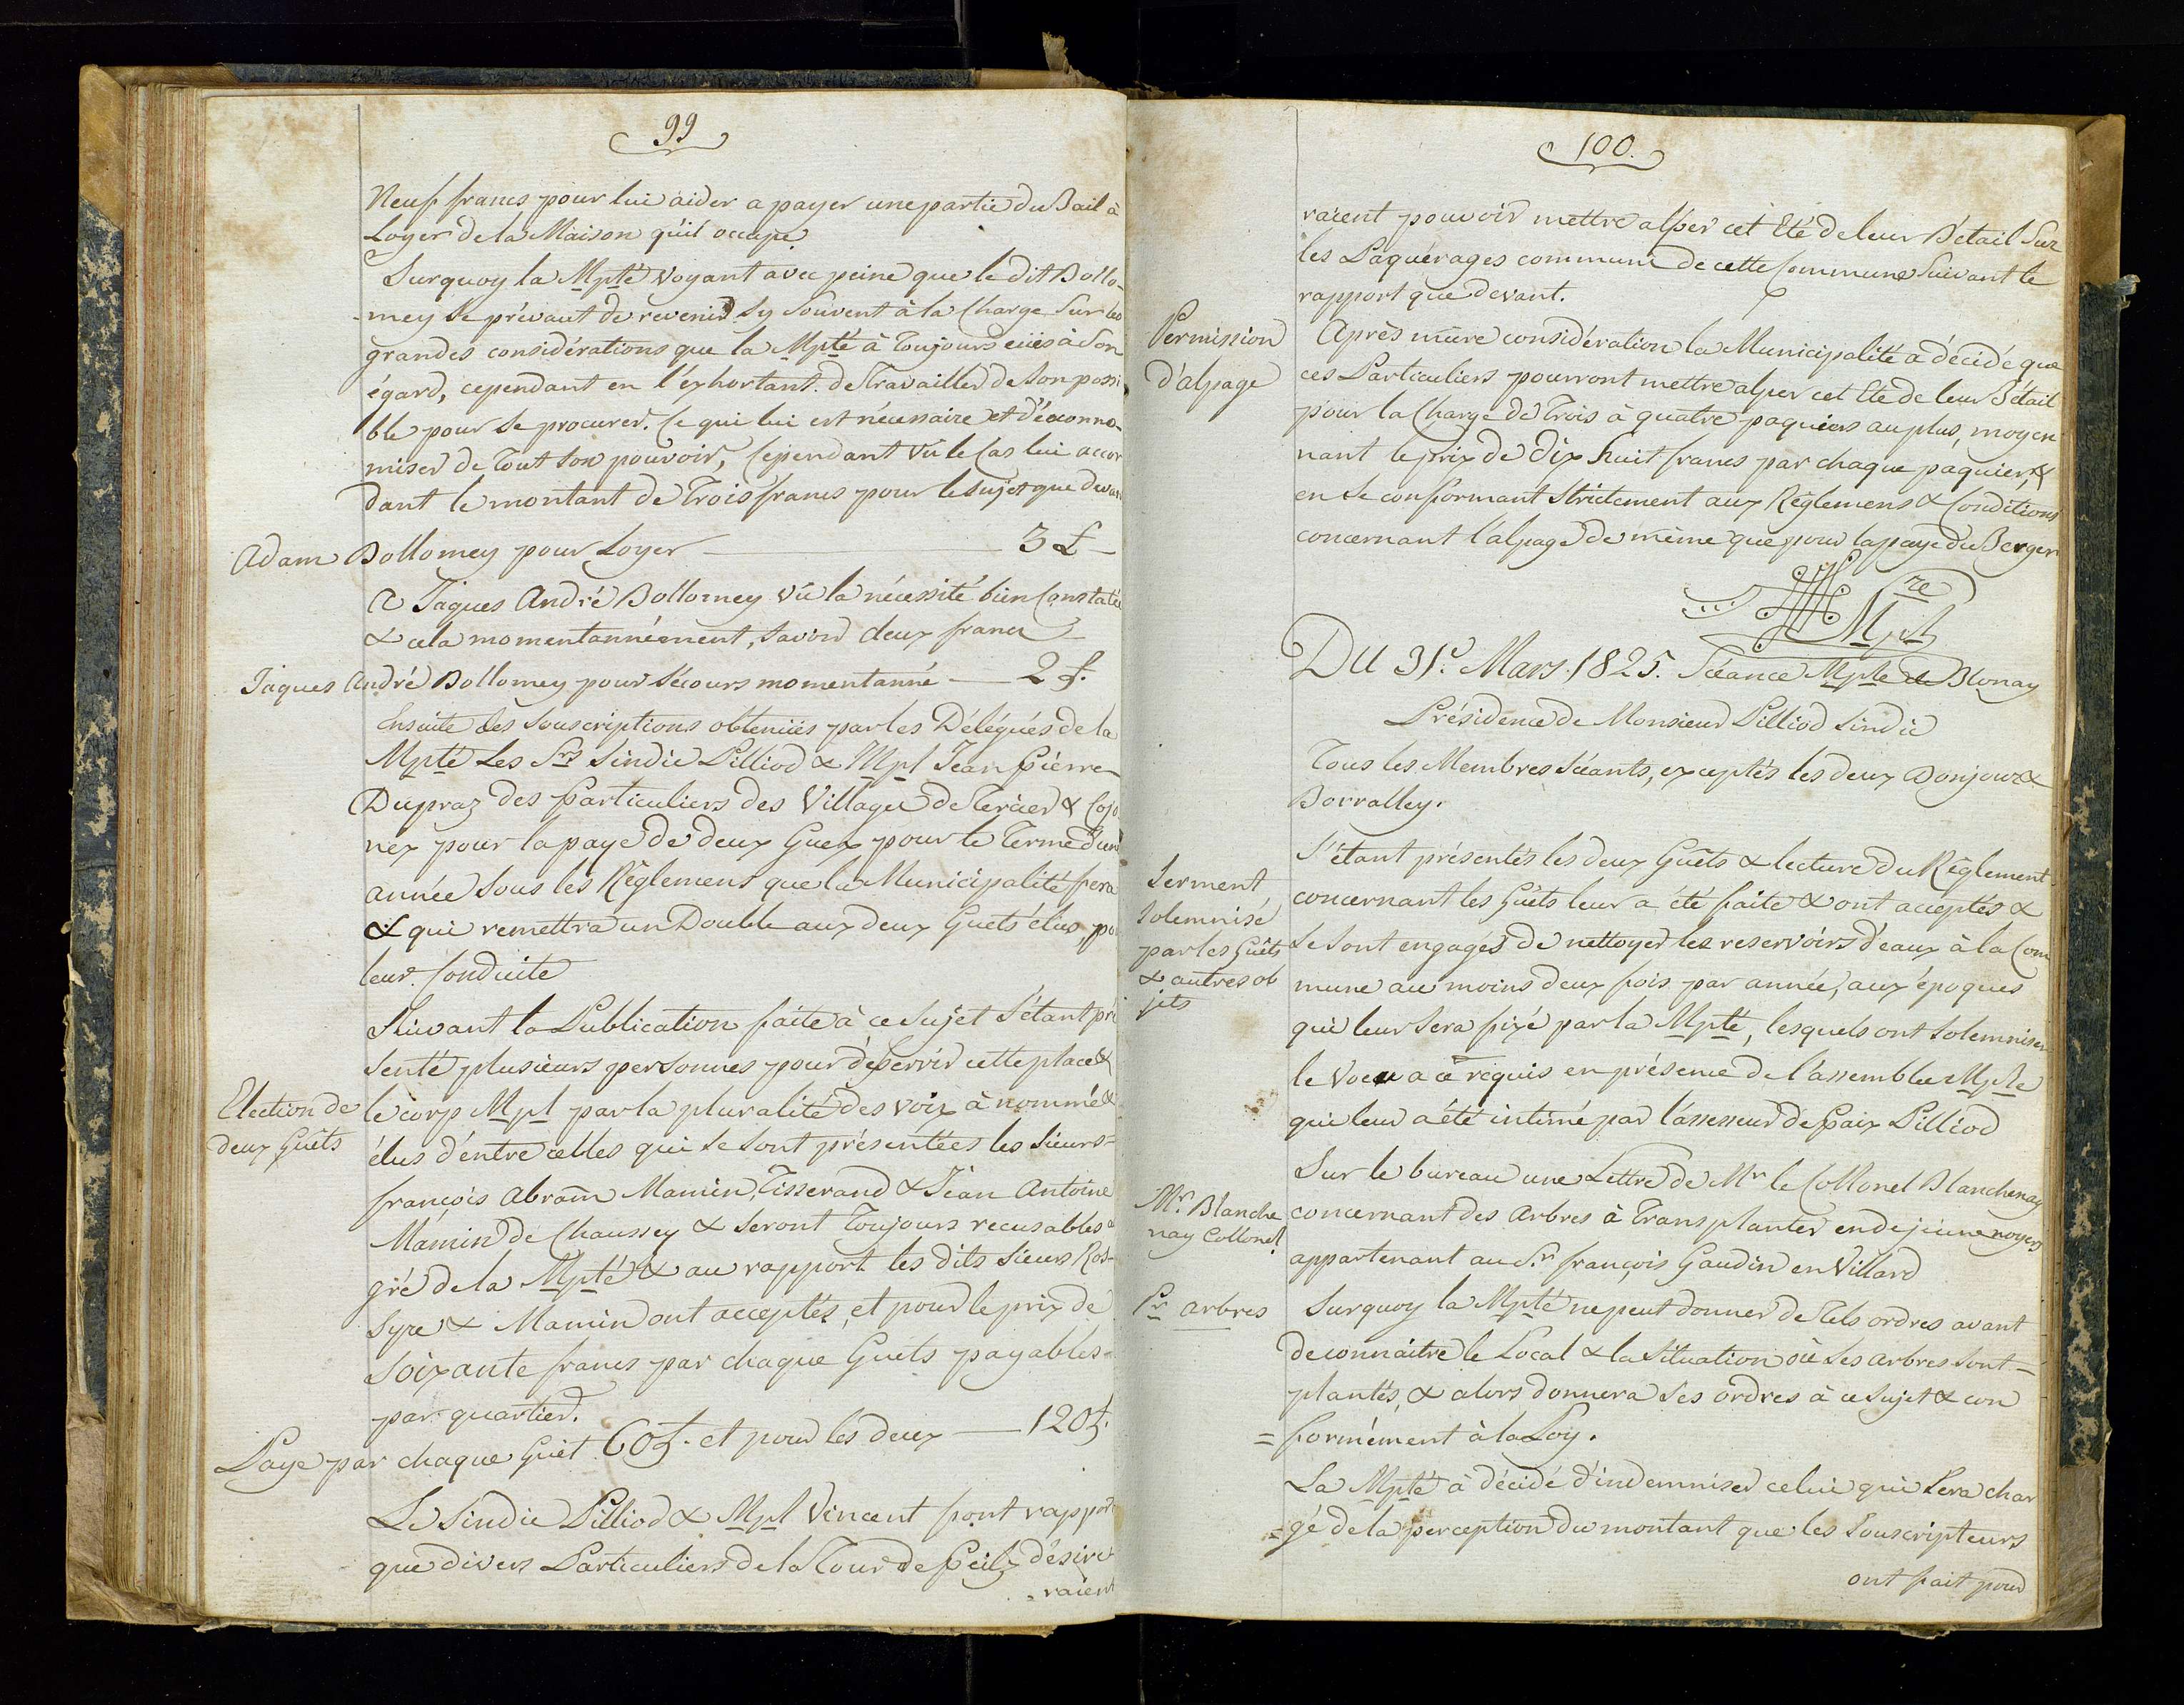 99
Neuf francs pour lui aider a payer une partie du Bail à
Loyer de la Maison qu'il occupe
Surquoy la Mpté voyant avec peine que le dit Bollo-
-mey se prévaut de revenir Sy Souvent à la Charge Sur les
grandes considérations que la Mpté à Toujours eües à Son
égard, cependant en l'éxhortant de Travailler de Son possi
ble pour Se procurer Ce qui lui est nécessaire et d'éconno-
miser de Tout Son pouvoir, Cependant vû le Cas lui accor
dant le montant de Trois francs pour le Sujet que devan
Adam Bollomey pour Loyer — 3 £ —
A Jaques André Bollomey vû la nécessité bien Constatée
& cela momentannément, Savoir deux francs
Jaques André Bollomey pour Sécours momentanné — 2 f.
Ensuite des Souscriptions obtenües par les Délégués de la
Mpté Les Srs Sindic Pilliod & Mpl Jean Pierre
Dupraz des Particuliers des Villages de Tercier & Cojo
nex pour la paye de deux Guex pour le Terme d'une
année Sous les Règlemens que la Municipalité fera
& qui remettra un Double aux deux Guets élus, po
leur Conduite
Suivant la Publication faite à ce Sujet S'étant pré
senté plusieurs personnes pour désservir cette place &
Election de
deux Guêts
le corp Mpl par la pluralité des voix à nommé &
élus d'éntre celles qui Se Sont présentées les Sieurs=
françois Abram Mamin, Tisserand & Jean Antoine
Mamin de Chaussey & Seront Toujours recusables a
gré de la Mpté & au rapport les dits Sieurs Ros-
Syre & Mamin ont acceptés, et pour le prix de
Soixante francs par chaque Guets payables=
par quartier.
Paye par chaque Guet 60 f. et pour les deux — 120 f.
Le Sindic Pilliod & Mpl Vincent font rapport
que divers Particuliers de la Tour de Peilz désire-
=raient
100.
raient pouvoir mettre alper cet Eté de leur Bétail Sur
les Pâquerages communs de cette Commune Suivant le
rapport que devant.
Permission
d'alpage
Après mûre considération la Municipalité à décidé que
ces Particuliers pourront mettre alper cet Eté de leur Bétail
pour la Charge de Trois à quatre paquiers au plus, moyen
nant le prix de Dix huit francs par chaque paquier, &
en Se conformant Strictement aux Règlemens & Conditions
concernant l'alpage de même que pour la paye du Berger
Mpl
Du 31e. Mars 1825. Séance Mple de Blonay
Présidence de Monsieur Pilliod Sindic
Tous les Membres Séants, exceptés les deux Bonjour &
Borralley.
Serment
Solemnisé
par les Guêts
& autres ob
jets
S'étant présentés les deux Guêts & lecture du Règlement
concernant les Guêts leur a été faite & ont acceptés &
Se Sont engagés de nettoyer les reservoirs d'eaux à la Com
mune au moins deux fois par année, aux époques
qui leur Sera fixé par la Mpté, lesquels ont Solemniser
le Voeu a ce réquis en présence de l'assemblée Mple
qui leur a été intimé par l'assesseur de Paix Pilliod
Mr. Blanche
nay Collonel
Pr arbres
Sur le bureau une Lettre de Mr le Collonel Blanchenay
concernant des Arbres à Transplanter en de jeune noyers
appartenant au Sr. françois Gaudin en Villard
Surquoy la Mpté ne peut donner de Tels ordres avant
de connaitre le Local & la Situation où Ses arbres Sont=
plantés, & alors donnera Ses ordres à ce Sujet & con
=formément à la Loy.
La Mpté à décidé d'indemniser celui qui Sera char
=gé de la perception du montant que les Souscripteurs
ont fait pour